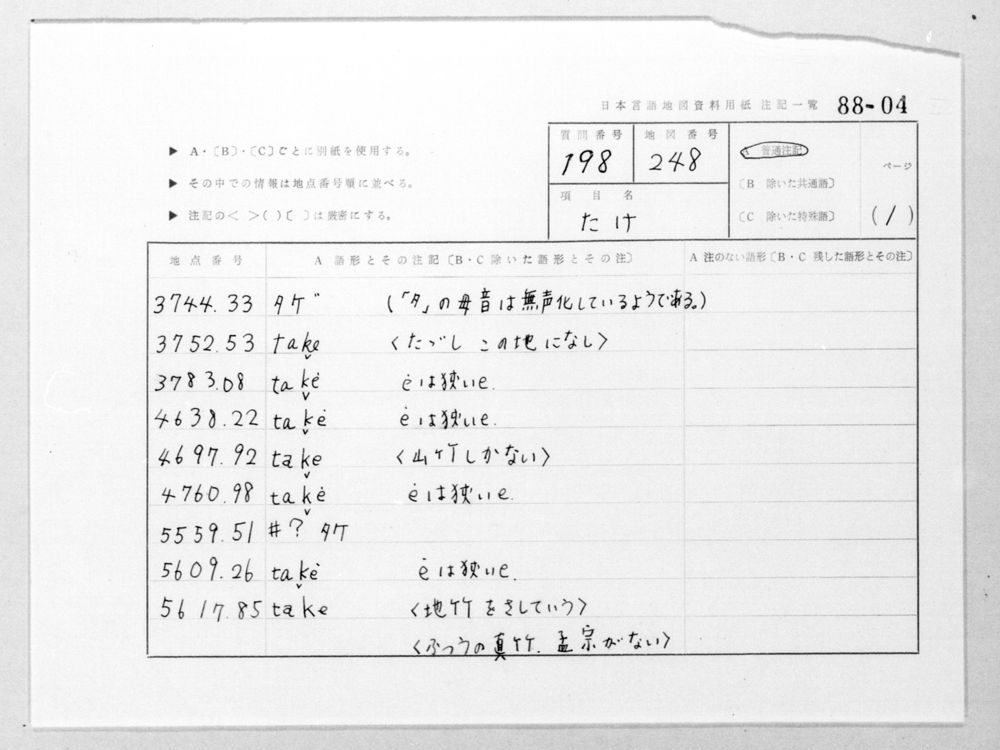 日本言語地図資料用紙 注記一覧 88-04
▶ A・〔B〕・〔C〕ごとに別紙を使用する。
▶ その中での情報は地点番号順に並べる。
▶ 注記の< >( )〔 〕は厳密にする。
質問番号 198
地図番号 248
項目名 たけ
A 普通注記
〔B 除いた共通語〕
〔C 除いた特殊語〕
ページ (1)
地点番号 A 語形とその注記〔B・C 除いた語形とその注〕 A 注のない語形〔B・C 残した語形とその注〕
3744.33 タケ゚ (「タ」の母音は無声化しているようである。)
3752.53 tak̬e 〈たづし この地になし〉
3783.08 tak̬ė ėは狭いe.
4638.22 tak̬ė ėは狭いe.
4697.92 tak̬e 〈山竹しかない〉
4760.98 tak̬ė ėは狭いe.
5559.51 #? タケ
5609.26 tak̬ė ėは狭いe.
5617.85 take 〈地竹をさしていう〉
〈ふつうの真竹.孟宗がない〉